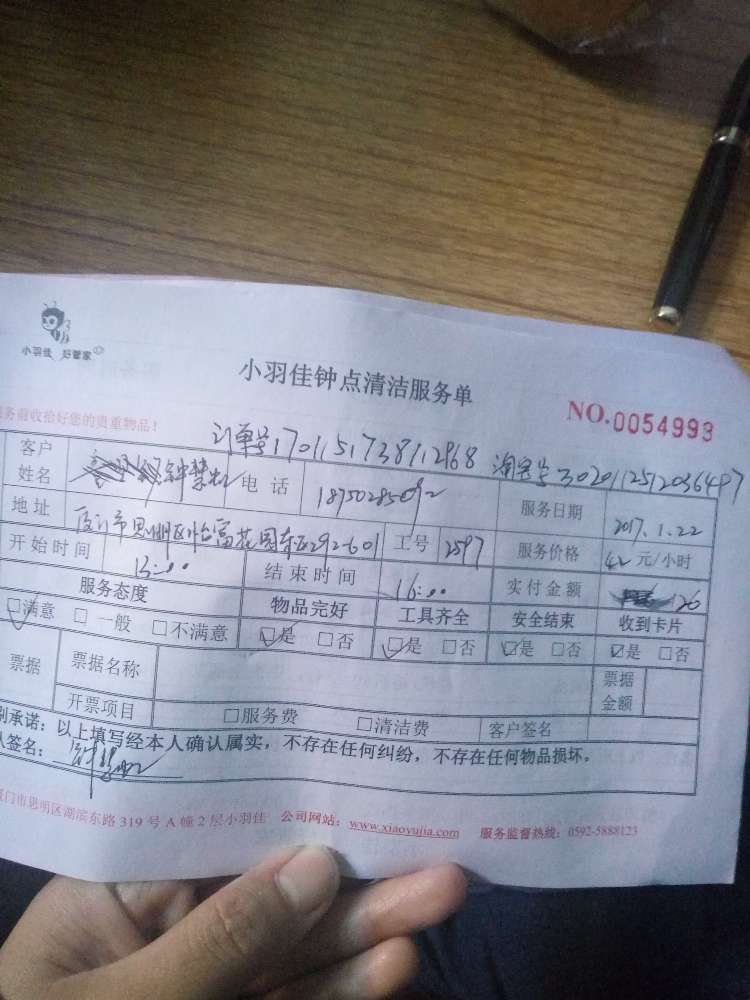 小羽佳 好管家
小羽佳钟点清洁服务单
NO.0054993
务前收拾好您的贵重物品!
订单号1701151738112968 淘宝号3020112512036497
客户姓名 电话 18750285092 服务日期 2017.1.22
地址 厦门市思明区怡富花园东区292-601 工号 2597 服务价格 42 元/小时
开始时间 13:00 结束时间 16:00 实付金额 126
服务态度 物品完好 工具齐全 安全结束 收到卡片
☑满意 □一般 □不满意 ☑是 □否 ☑是 □否 ☑是 □否 ☑是 □否
票据 票据名称 票据金额
开票项目 □服务费 □清洁费 客户签名
别承诺:以上填写经本人确认属实,不存在任何纠纷,不存在任何物品损坏。
人签名:
厦门市思明区湖滨东路 319 号 A 幢 2 层小羽佳 公司网站:www.xiaoyujia.com 服务监督热线:0592-5888123